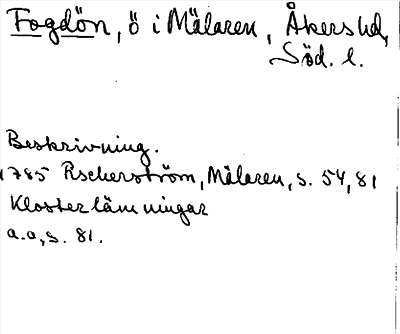 Fogdön, ö i Mälaren, Åkers hd,
Söd. l.
Beskrivning.
1785 Rscherström, Mälaren, s. 54, 81
Klosterlämningar
a.a, s. 81.